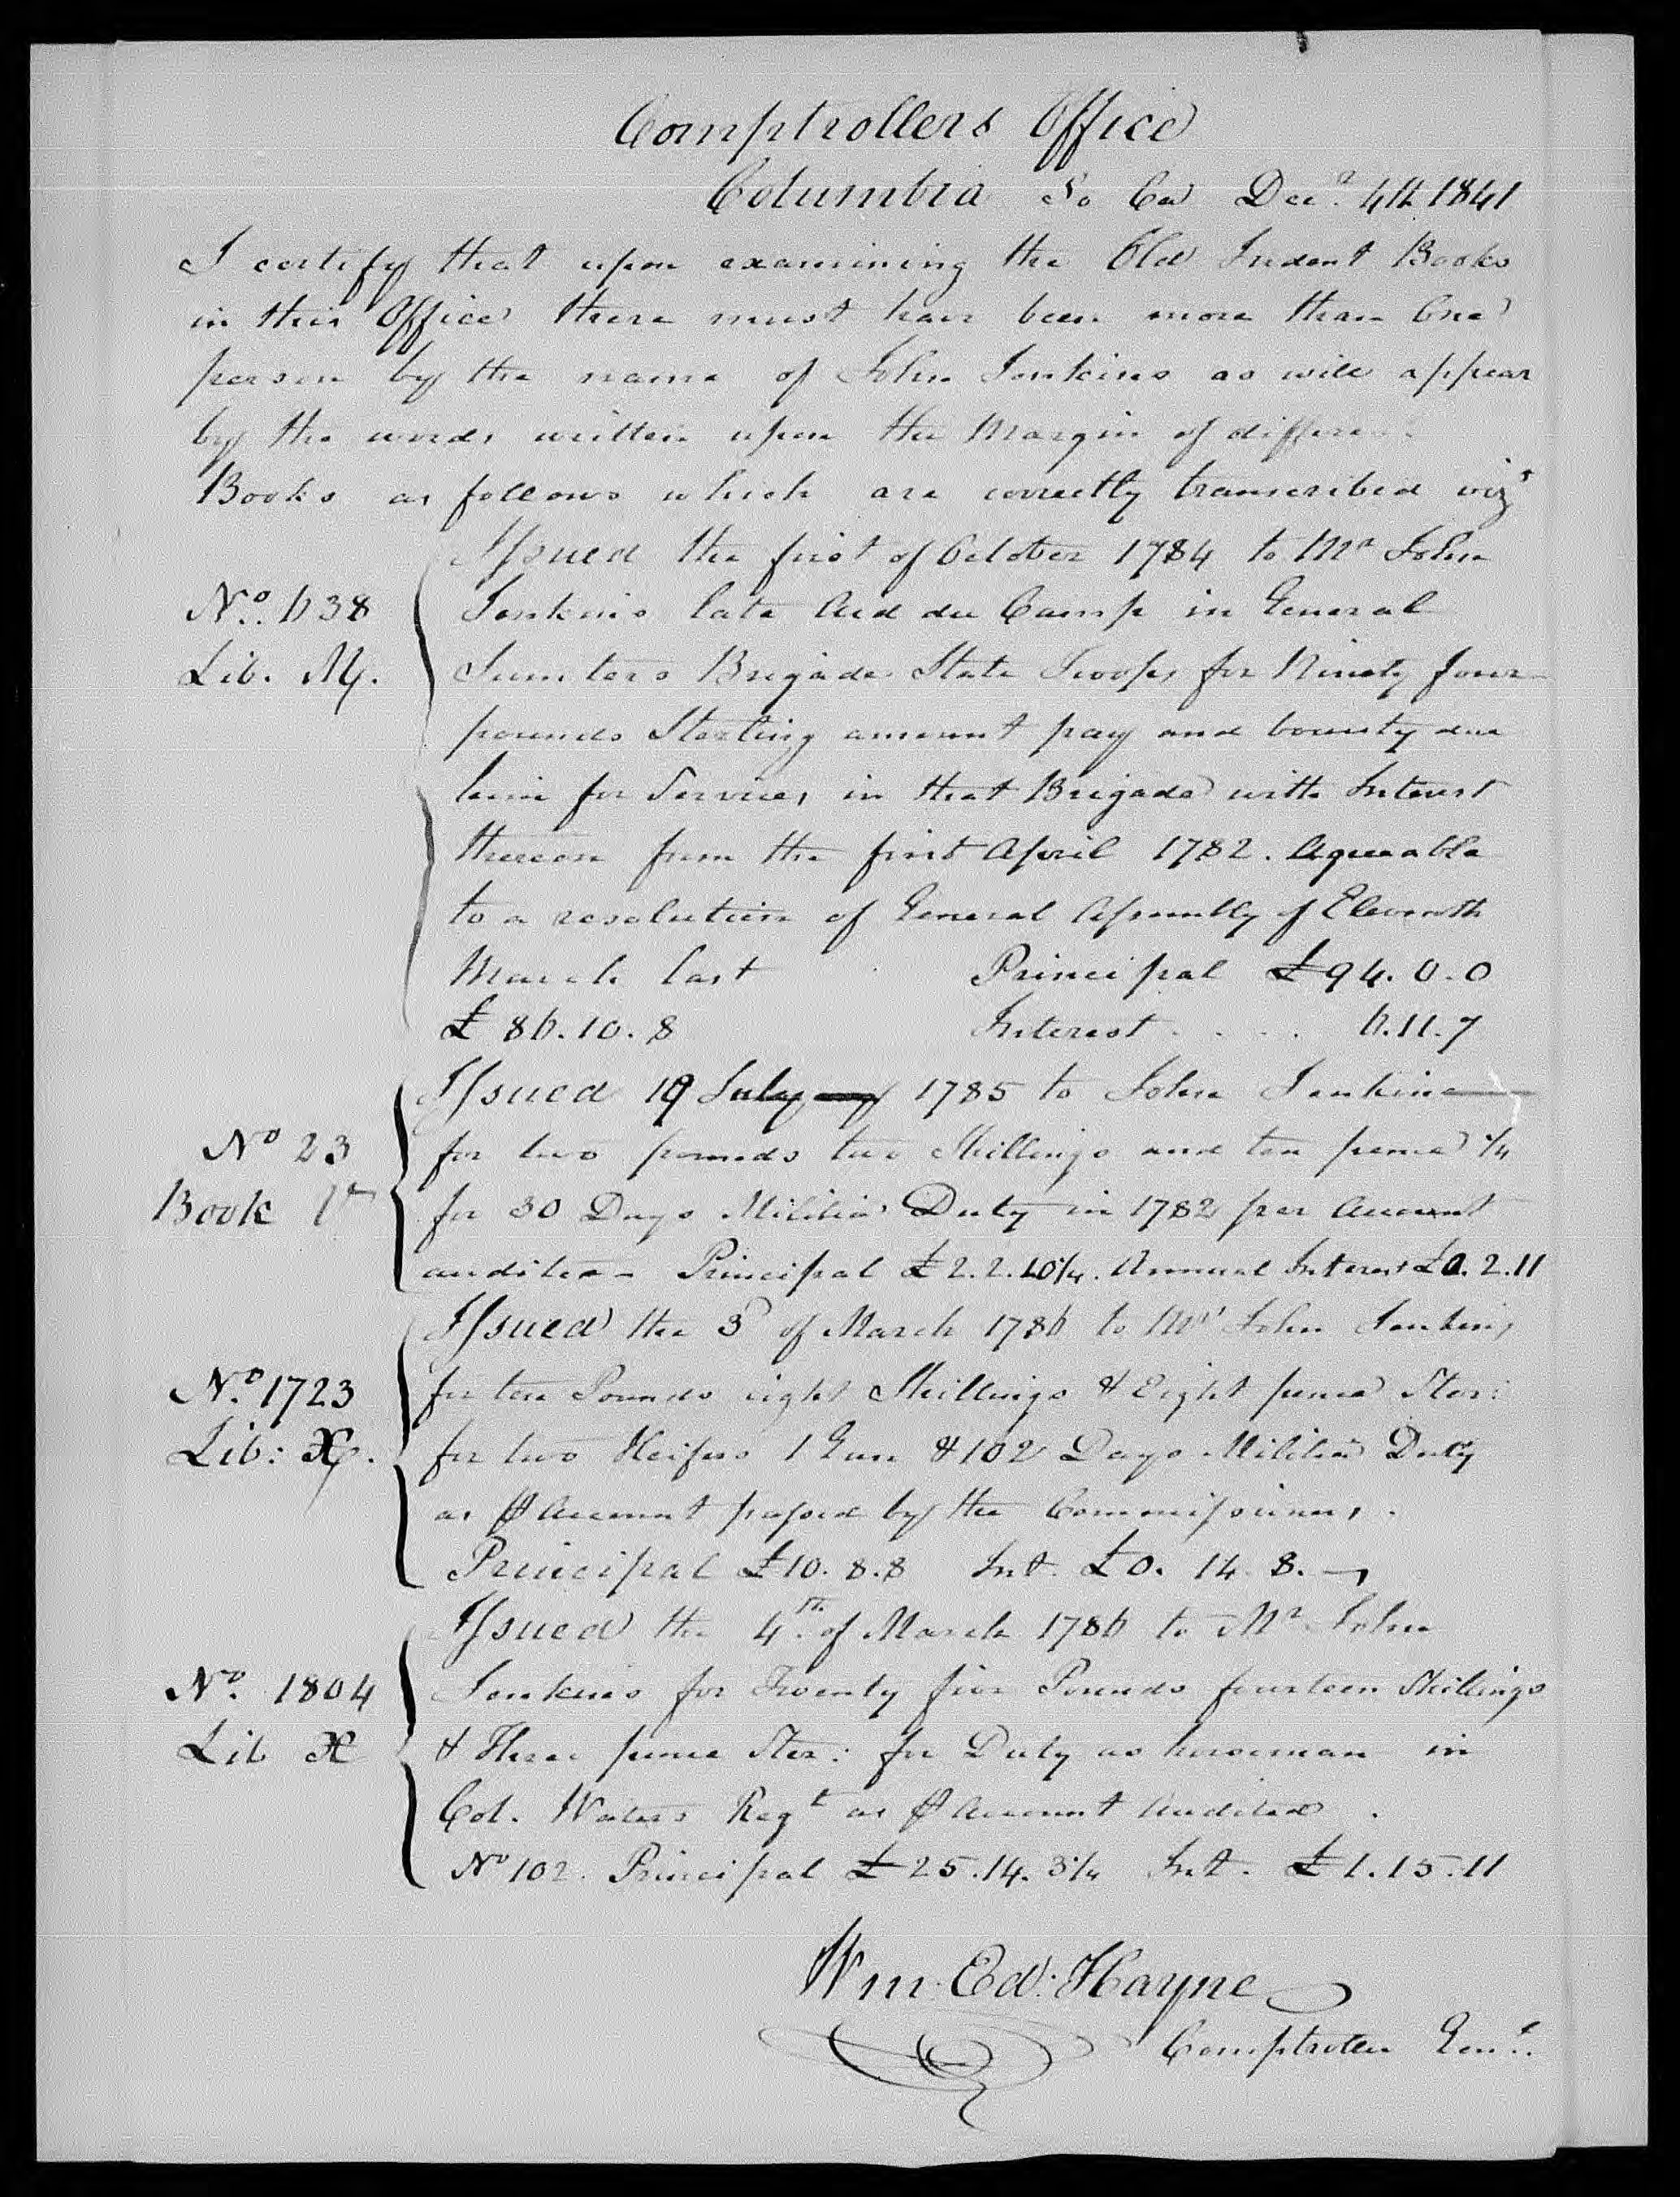 Comptrollers Office
Columbia So Ca Decr. 4th 1841
I certify that upon examining the Old Indent Books
in this Office there must have been more than One
person by the name of John Jenkins as will appear
by the words written upon the Margin of differen
Books as follows which are correctly transcribed vizt
Issued the first of October 1784 to Mr John
No. 638 Jenkins late Aid du Camp in General
Lib. M. Sumters Brigade State Troops for Ninety four
pounds Sterling amount pay and bounty due
him for Services in that Brigade with Interest
thereon from the first April 1782. Agreeable
to a resolution of General Assembly of Eleventh
March last Principal £94.0.0
£86.10.8 Interest . . . . 6.11.7
Issued 19 July 1785 to John Jenkins
No 23 for two pounds two Shillings and ten pence 1/4
Book for 30 Days Militia Duty in 1782 per Account
audited - Principal £2.2.10 1/4. Annual Interest £0.2.11
Issued the 3d of March 1786 to Mr John Jenkins
No. 1723 for ten Pounds eight Shillings & Eight pence Ster:
Lib: X. for two Heifers 1 Gun & 102 Days Militia Duty
as ⅌ Account passed by the Commissioners.
Principal £10.8.8 Int. £0.14.8.
Issued the 4th. of March 1786 to Mr John
No. 1804 Jenkins for Twenty five Pounds fourteen Shillings
Lib X & Three pence Ster: for Duty as horseman in
Col. Waters Regt as ⅌ Account Audited.
No 102. Principal £25.14.3 1/4 Int. £1.15.11
Wm. Ed: Hayne
Comptroller Genl.